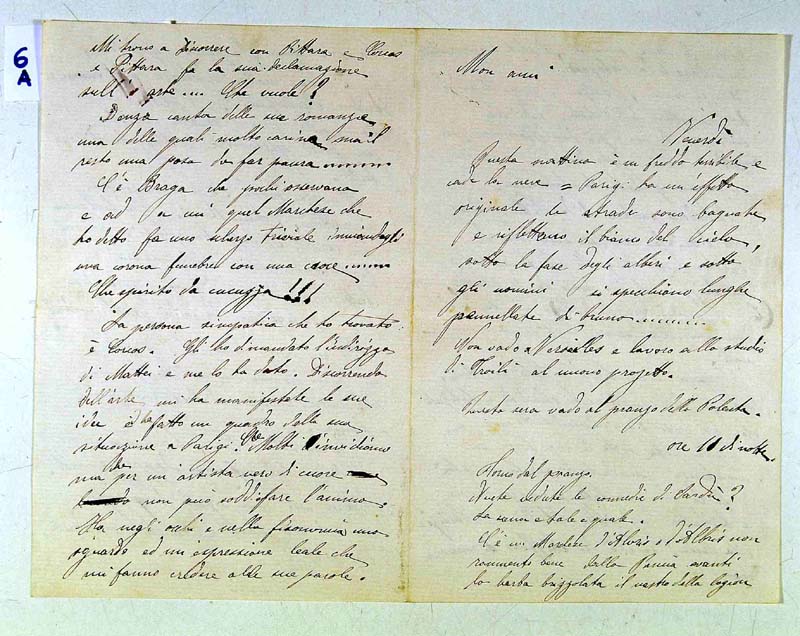 6
A
Mi trovo a discorrere con Pittara e Corcos
e Pittara fa la sua declamazione
sull' arte... Che vuole?
Denza canta delle sue romanze
una delle quali molto carina, ma il
resto una posa da far paura..........
C'è Braga che pochi osservano
e ad un quel Marchese che
ho detto fa uno scherzo triviale inviandogli
una corona funebre con una croce........
Che spirito da cucuzza!!!
La persona simpatica che ho trovato
è Corcos. Gli ho domandato l'indirizzo
di Mattei e me lo ha dato. Discorrendo
dell'arte mi ha manifestate le sue
idee ed ha fatto un quadro della sua
situazione a Parigi. Che Molti invidiano
ma che per un artista vero di cuore
non può soddisfare l'animo.
Ha negli occhi e nella fisonomia uno
sguardo ed un espressione leale che
mi fanno credere alle sue parole.
Mon ami
Venerdì
Questa mattina è un freddo terribile e
cade la neve = Parigi ha un effetto
originale le strade sono bagnate
e riflettono il bianco del cielo,
sotto la fase degli alberi e sotto
gli uomini si specchiano lunghe
pennellate di bruno..........
Non vado a Versailles e lavoro allo studio
di Troili al nuovo progetto.
Questa sera vado al pranzo della Polenta.
ore 11 di notte.
Torno dal pranzo.
Avete vedute le comedie di Sardou?
La scena è tale e quale.
C'è un Marchese d'Alvis o d'Albis non
rammento bene dalla Pancia avanti
la barba brizzolata il nastro della legion